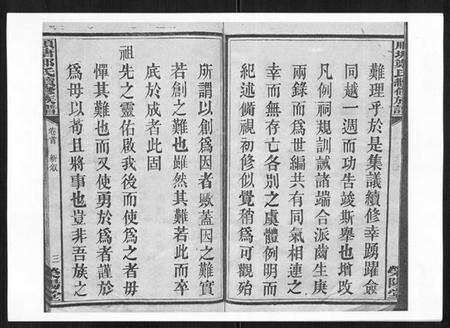 難理乎於是集議續修幸踴躍僉
同越一週而功告竣斯舉也增攺
凡例祠規訓誡諸端合派齒生庚
兩錄而爲世編共有同氣相連之
幸而無存亡各別之虞體例明而
紀述備視初修似覺稍爲可觀殆
所謂以創爲因者歟蓋因之難實
若創之難也雖然其難若此而卒
底於成者此固
祖先之靈佑啟我後而使爲之者毋
憚其難也而又使勇於爲者謹於
爲毋以苟且將事也豈非吾族之
卷首
新敘
三